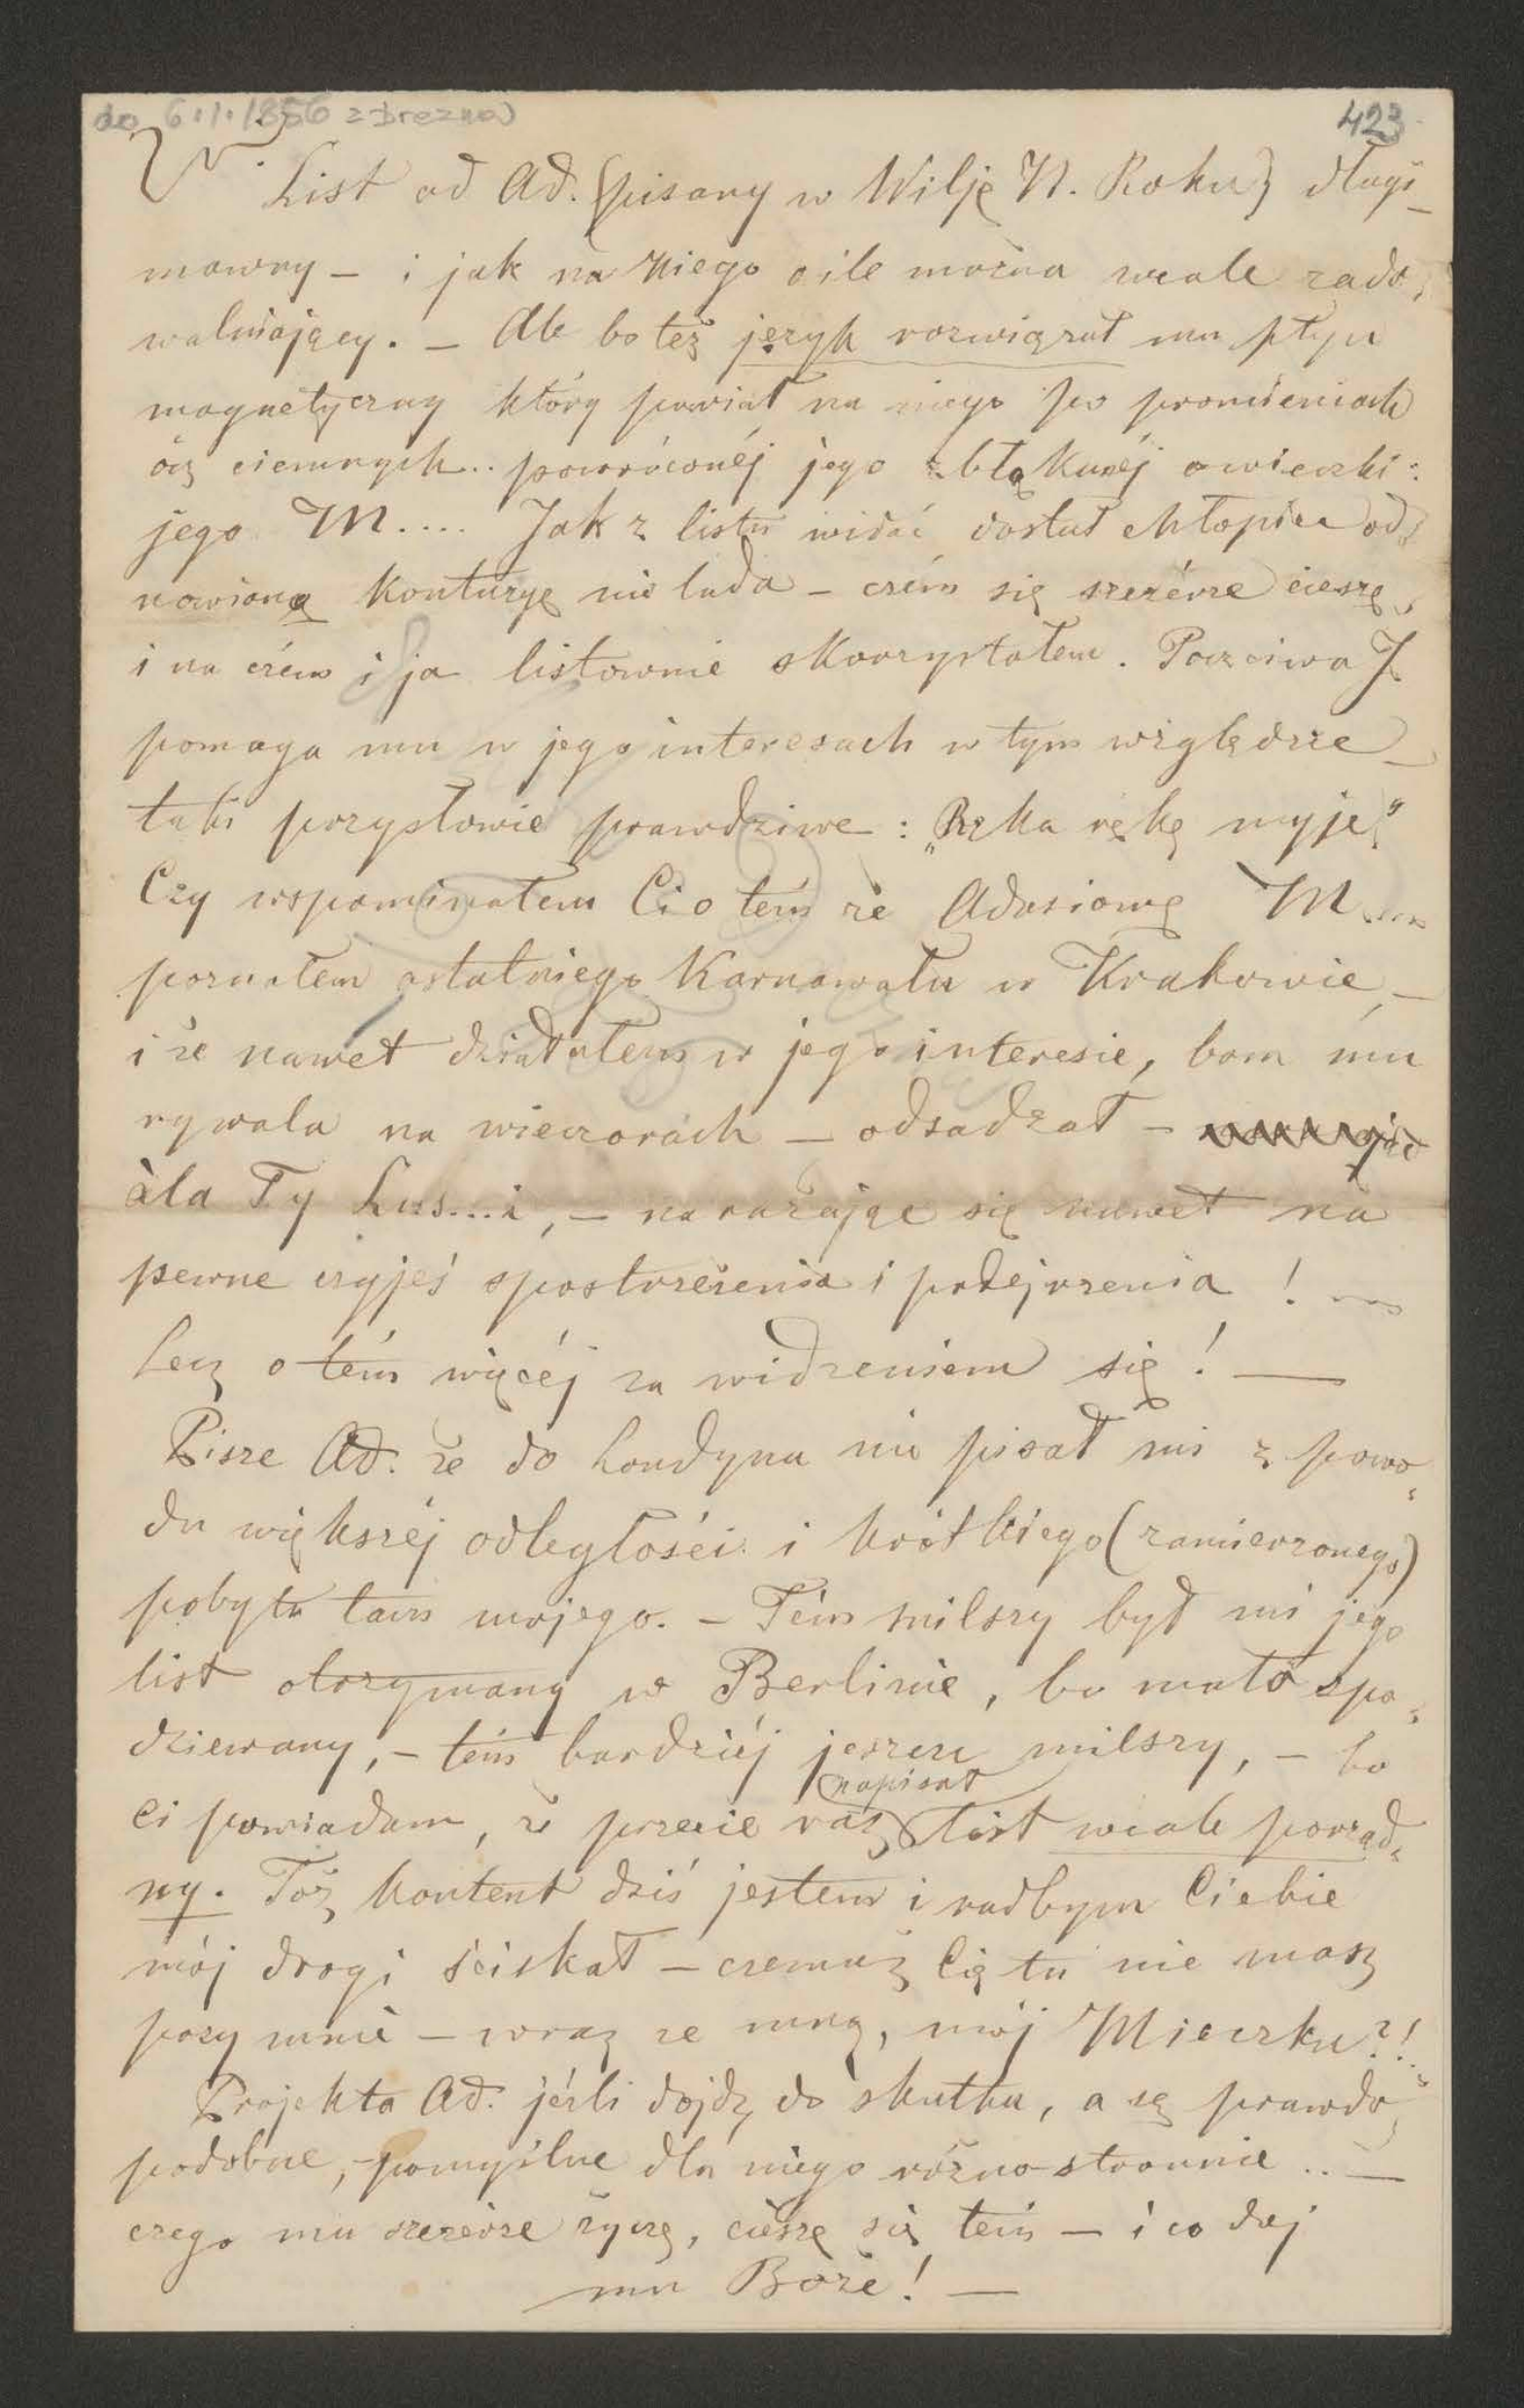 do 6.1.1856 z Drezna
423
List od Ad. (pisany w Wilję N. Roku) długi_
mowny – i jak na Niego o ile można wcale zado,
walniający. – Ale bo też język rozwiązał mu płyn
magnetyczny który powiał na niego po promieniach
ócz ciemnych.. powróconéj jego zbłąkanéj owieczki:
jego M.... Jak z listu widać dostał chłopiec od,
nowioną kontuzyę nie lada – czém się szczérze cieszę,
i na czém i ja listownie skorzystałem. Poczciwa J.
pomaga mu w jego interesach w tym względzie –
tak przysłowie prawdziwe: „Ręka rękę myje"
Czy wspominałem Ci o tém że Adasiową M....
poznałem ostatniego Karnawału w Krakowie, –
i że nawet działałem w jego interesie, bom mu
rywala na wieczorach – odsadzał –
à la Ty Lus...i, – narażając się nawet na
pewne czyjeś spostrzeżenia i podejrzenia !
Lecz o tém więcéj za widzeniem się! —
Pisze Ad. że do Londynu nie pisał mi z powo,
du większéj odległości i krótkiego (zamierzonego)
pobytu tam mojego. – Tém milszy był mi jego
list otrzymany w Berlinie, bo mało spo,
dziewany, – tém bardziéj jeszcze milszy, – bo
napisał
Ci powiadam, że przecie raz list wcale porząd,
ny. Toż kontent dziś jestem i radbym Ciebie
mój drogi ściskał – czemuż Cię tu nie masz
przy mnie – wraz ze mną, mój Mieczku?!..
Projekta Ad. jeśli dojdą do skutku, a są prawdo,
podobne, – pomyślne dla niego różnostronnie .. —
czego mu szczérze życzę, cieszę się tém – i co daj
mu Boże! —